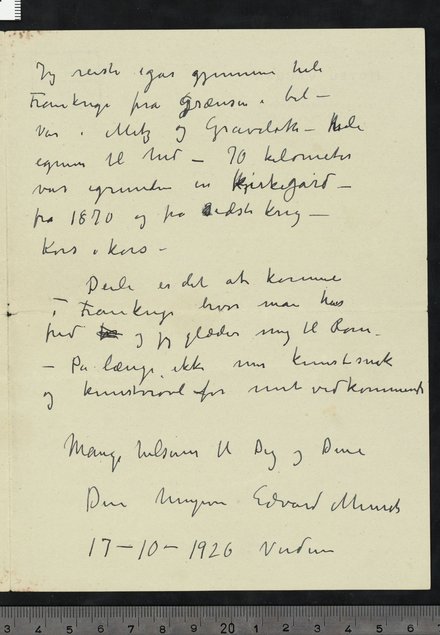 Jeg reiste igår gjennem hele
Frankrige fra Grænsen i bil –
Var i Metz og Gravelotte – Hele
egnen til Verd – 70 kilometer
var egnen en Kirkegård –
fra 1870 og fra sidste krig –
Kors i kors –
Deilig er det at komme
i Frankrige hvor man har
fred og jeg glæder mig til Rom.
– På længe ikke mer kunstsnak
og kunstvrøvl for mit vedkommende
Mange hilsener til Dig og Dine
Din hengivne Edvard Munch
17–10–1926 Verdun
3 4 5 6 7 8 9 20 1 2 3 4 5 6